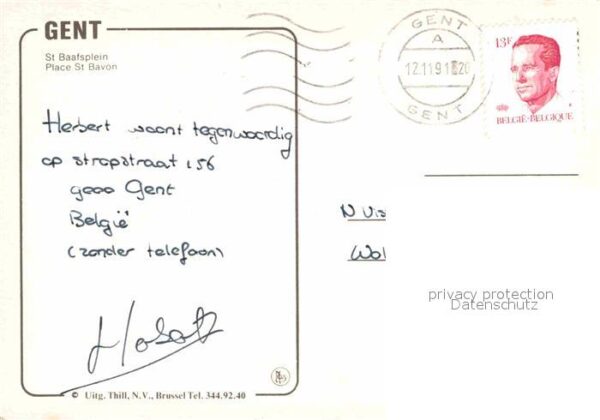 GENT
St Baafsplein
Place St Bavon
GENT
A
12.11.91
GENT
13F
BELGIË-BELGIQUE
Herbert woont tegenwoordig
op stropstraat 156
9000 Gent
België
(zonder telefoon)
N
Wol
privacy protection
Datenschutz
© Uitg. Thill, N.V., Brussel Tel. 344.92.40